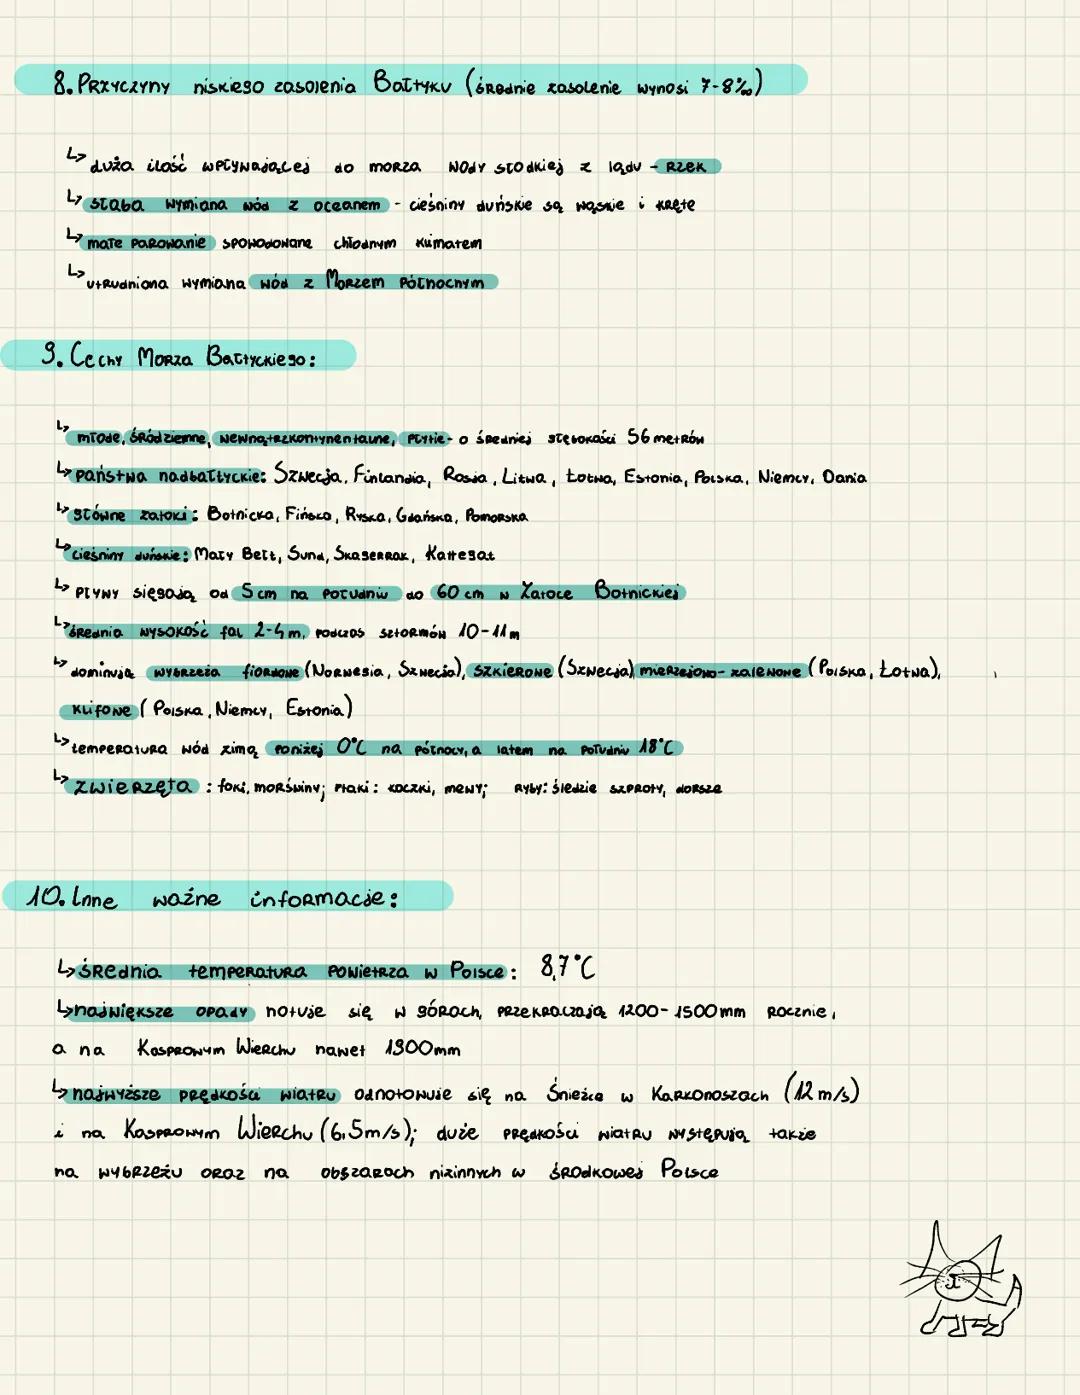 8. Przyczyny niskiego zasolenia Bałtyku (średnie zasolenie wynosi 7-8‰)
↳ duża ilość wpływającej do morza wody słodkiej z lądu - rzek
↳ słaba wymiana wód z oceanem - cieśniny duńskie są wąskie i kręte
↳ małe parowanie spowodowane chłodnym klimatem
↳ utrudniona wymiana wód z Morzem Północnym
9. Cechy Morza Bałtyckiego:
↳ młode, śródziemne, wewnątrzkontynentalne, płytkie - o średniej głębokości 56 metrów
↳ państwa nadbałtyckie: Szwecja, Finlandia, Rosja, Litwa, Łotwa, Estonia, Polska, Niemcy, Dania
↳ główne zatoki: Botnicka, Fińska, Ryska, Gdańska, Pomorska
↳ cieśniny duńskie: Mały Bełt, Sund, Skagerrak, Kattegat
↳ pływy sięgają od 5 cm na południu do 60 cm w Zatoce Botnickiej
↳ średnia wysokość fal 2-4 m, podczas sztormów 10-11 m
↳ dominują wybrzeża fiordowe (Norwegia, Szwecja), szkierowe (Szwecja) mierzejowo-zalewowe (Polska, Łotwa),
klifowe (Polska, Niemcy, Estonia)
↳ temperatura wód zimą poniżej 0°C na północy, a latem na południu 18°C
↳ zwierzęta : foki, morświny; ptaki: kaczki, mewy; ryby: śledzie szproty, dorsze
10. Inne ważne informacje:
↳ średnia temperatura powietrza w Polsce: 8,7°C
↳ największe opady notuje się w górach, przekraczają 1200-1500mm rocznie,
a na Kasprowym Wierchu nawet 1900mm
↳ najwyższe prędkości wiatru odnotowuje się na Śnieżce w Karkonoszach (12 m/s)
i na Kasprowym Wierchu (6,5m/s); duże prędkości wiatru występują także
na wybrzeżu oraz na obszarach nizinnych w środkowej Polsce